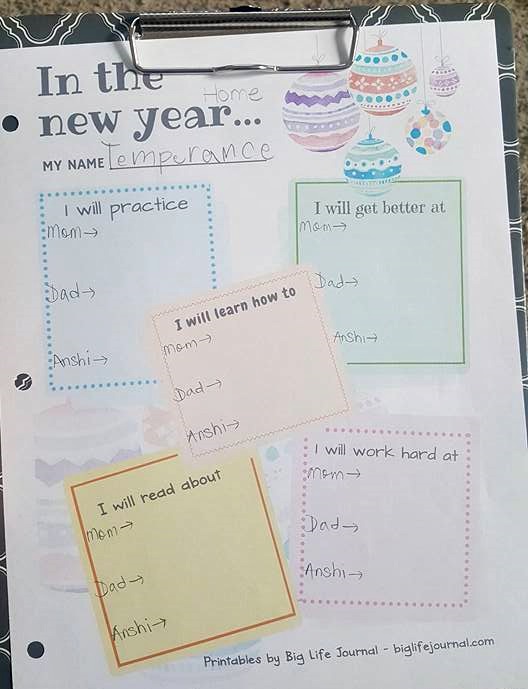 In the
Home
new year...
MY NAME Temperance
I will practice
Mom→
Dad→
Anshi→
I will get better at
Mom→
Dad→
Anshi→
I will learn how to
Mom→
Dad→
Anshi→
I will read about
Mom→
Dad→
Anshi→
I will work hard at
Mom→
Dad→
Anshi→
Printables by Big Life Journal - biglifejournal.com